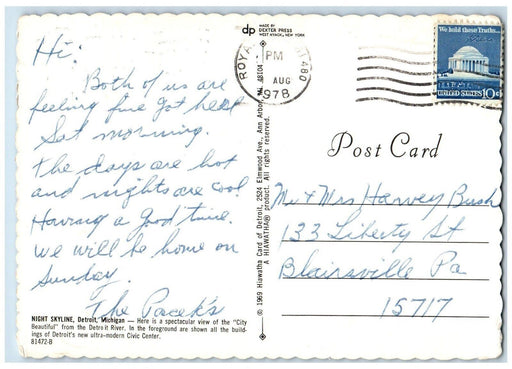 dp
MADE BY
DEXTER PRESS
WEST NYACK, NEW YORK
Hi:
Both of us are
feeling fine Got here
Sat morning.
The days are hot
and nights are cool
Having a Good time.
We will be home on
Sunday.
The Pacek's
NIGHT SKYLINE, Detroit, Michigan — Here is a spectacular view of the "City
Beautiful" from the Detroit River. In the foreground are shown all the build-
ings of Detroit's new ultra-modern Civic Center.
81472-B
© 1969 Hiawatha Card of Detroit, 2524 Elmwood Ave., Ann Arbor, Mi. 48104
A HIAWATHA® product. All rights reserved.
ROYA
480
PM
AUG
1978
We hold these Truths...
UNITED STATES 10c
Post Card
Mr & Mrs Harvey Bush
133 Liberty St
Blairsville Pa
15717